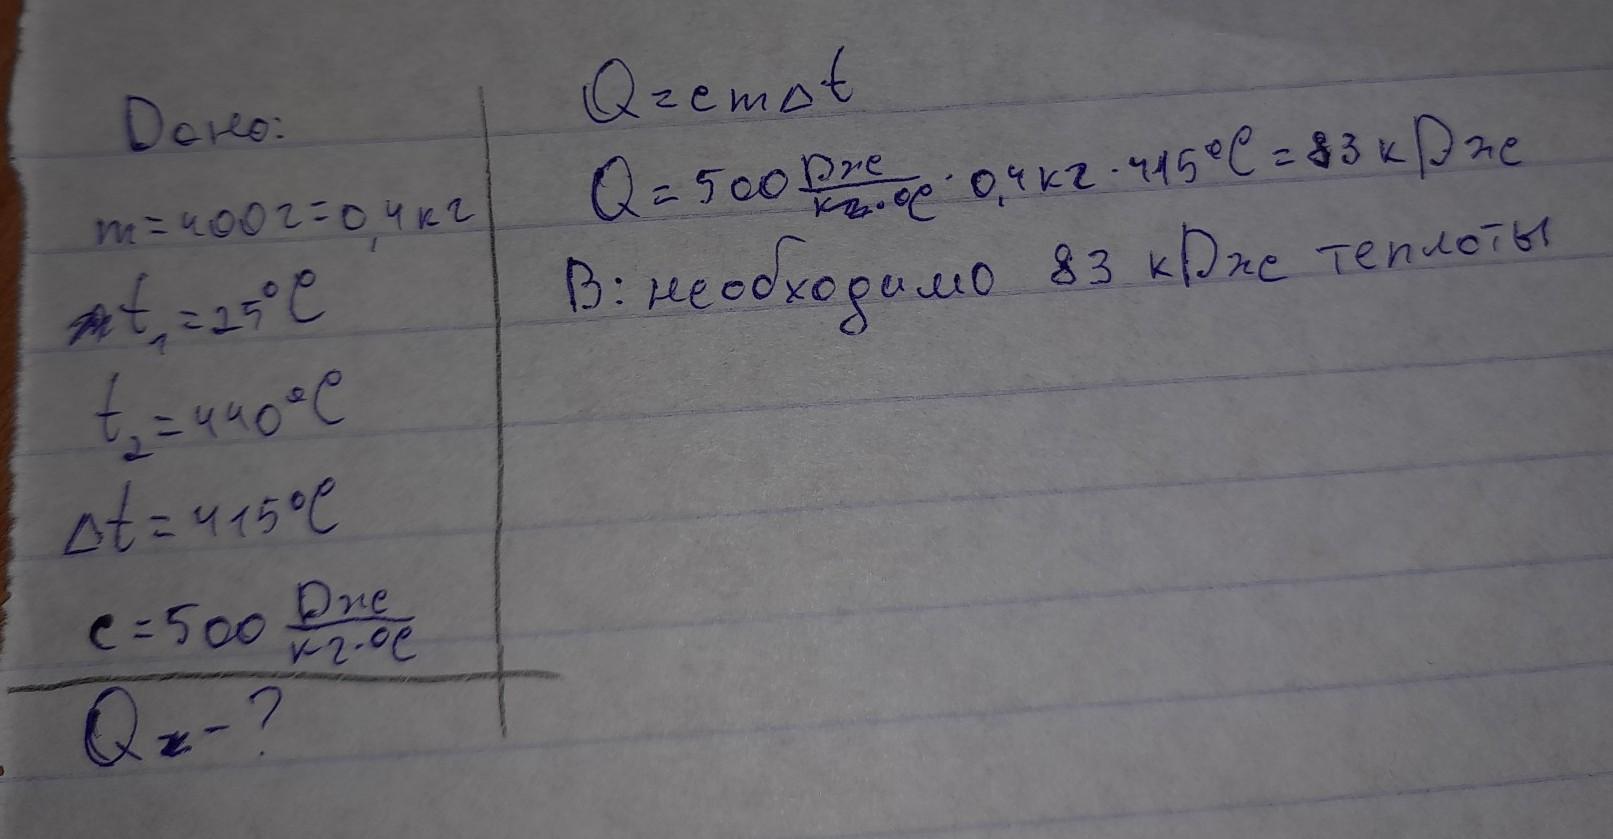 Дано:
m=400г=0,4кг
t₁=25°C
t₂=440°C
Δt=415°C
c=500 Дже/кг·°C
Q-?
Q=cmΔt
Q=500 Дже/кг·°C·0,4кг·415°C=83 кДже
В: необходимо 83 кДже теплоты